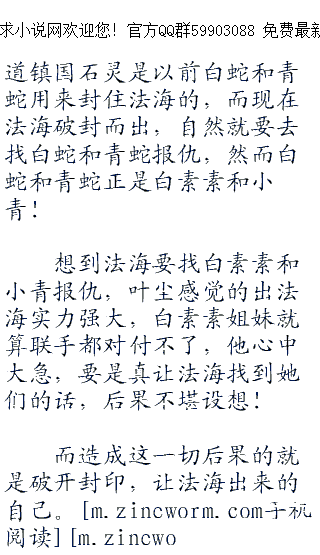 求小说网欢迎您! 官方QQ群59903088 免费最新
道镇国石灵是以前白蛇和青
蛇用来封住法海的，而现在
法海破封而出，自然就要去
找白蛇和青蛇报仇，然而白
蛇和青蛇正是白素素和小
青！
想到法海要找白素素和
小青报仇，叶尘感觉的出法
海实力强大，白素素姐妹就
算联手都对付不了，他心中
大急，要是真让法海找到她
们的话，后果不堪设想！
而造成这一切后果的就
是破开封印，让法海出来的
自己。[m.zincworm.com手机
阅读][m.zincwo